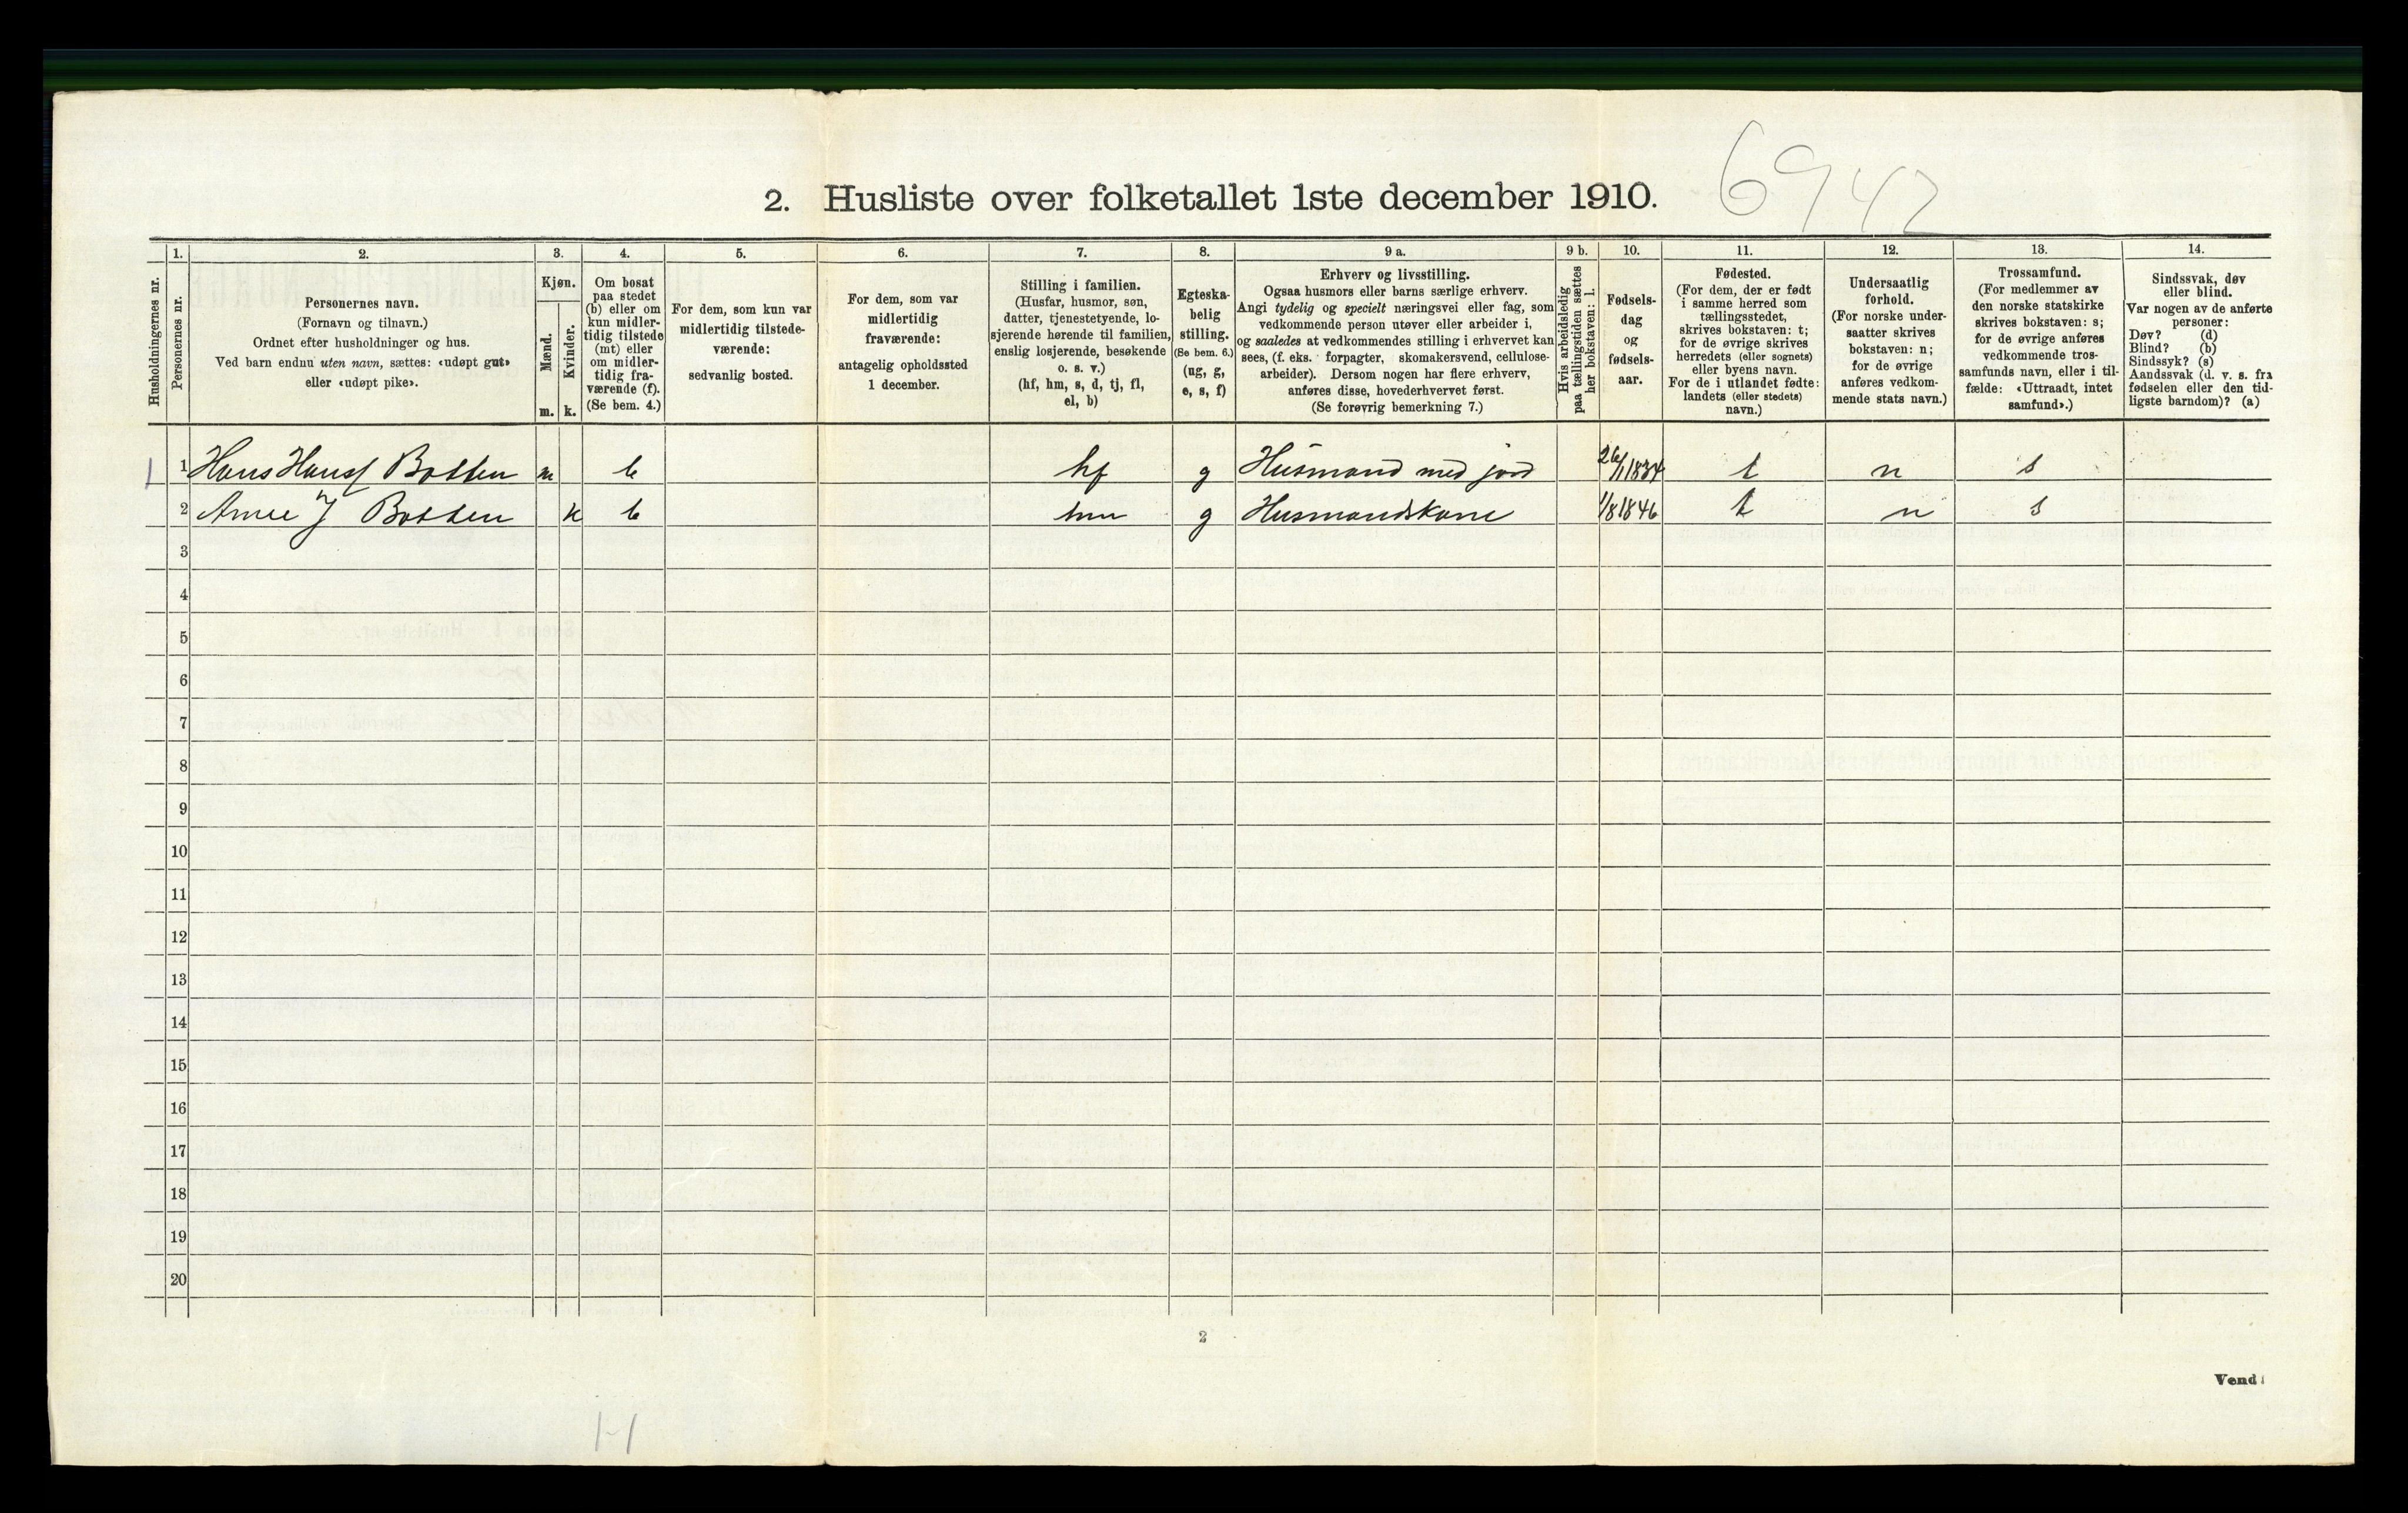 6942
2. Husliste over folketallet 1ste december 1910.
Husholdningernes nr.
1.
Personernes nr.
2.
Personernes navn.
(Fornavn og tilnavn.)
Ordnet efter husholdninger og hus.
Ved barn endnu uten navn, sættes: «udøpt gut»
eller «udøpt pike».
3.
Kjøn.
Mænd.
Kvinder.
m. k.
4.
Om bosat
paa stedet
(b) eller om
kun midler-
tidig tilstede
(mt) eller
om midler-
tidig fra-
værende (f).
(Se bem. 4.)
5.
For dem, som kun var
midlertidig tilstede-
værende:
sedvanlig bosted.
6.
For dem, som var
midlertidig
fraværende:
antagelig opholdssted
1 december.
7.
Stilling i familien.
(Husfar, husmor, søn,
datter, tjenestetyende, lo-
sjerende hørende til familien,
enslig losjerende, besøkende
o. s. v.)
(hf, hm, s, d, tj, fl,
el, b)
8.
Egteska-
belig
stilling.
(Se bem. 6.)
(ug, g,
e, s, f)
9 a.
Erhverv og livsstilling.
Ogsaa husmors eller barns særlige erhverv.
Angi tydelig og specielt næringsvei eller fag, som
vedkommende person utøver eller arbeider i,
og saaledes at vedkommendes stilling i erhvervet kan
sees, (f. eks. forpagter, skomakersvend, cellulose-
arbeider). Dersom nogen har flere erhverv,
anføres disse, hovederhvervet først.
(Se forøvrig bemerkning 7.)
9 b.
Hvis arbeidsledig
paa tællingstiden sættes
her bokstaven: l.
10.
Fødsels-
dag
og
fødsels-
aar.
11.
Fødested.
(For dem, der er født
i samme herred som
tællingsstedet,
skrives bokstaven: t;
for de øvrige skrives
herredets (eller sognets)
eller byens navn.
For de i utlandet fødte:
landets (eller stedets)
navn.)
12.
Undersaatlig
forhold.
(For norske under-
saatter skrives
bokstaven: n;
for de øvrige
anføres vedkom-
mende stats navn.)
13.
Trossamfund.
(For medlemmer av
den norske statskirke
skrives bokstaven: s;
for de øvrige anføres
vedkommende tros-
samfunds navn, eller i til-
fælde: «Uttraadt, intet
samfund».)
14.
Sindssvak, døv
eller blind.
Var nogen av de anførte
personer:
Døv? (d)
Blind? (b)
Sindssyk? (s)
Aandssvak (d. v. s. fra
fødselen eller den tid-
ligste barndom)? (a)
1 1 Hans Hansf Botten m b hf g Husmand med jord 26/1 1834 t n s
2 Anne J Botten k b hm g Husmandskone 1/8 1846 t n s
3
4
5
6
7
8
9
10
11
12
13
14
15
16
17
18
19
20
2
Vend!
1-1